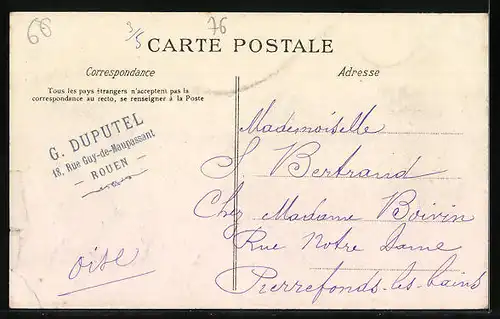 66
3/5
76
CARTE POSTALE
Correspondance
Tous les pays étrangers n'acceptent pas la
correspondance au recto, se renseigner à la Poste
G. DUPUTEL
18, Rue Guy-de-Maupassant
- ROUEN -
Oise
Adresse
Mademoiselle
S Bertrand
Chez Madame Boivin
Rue Notre Dame
Pierrefonds-les-bains